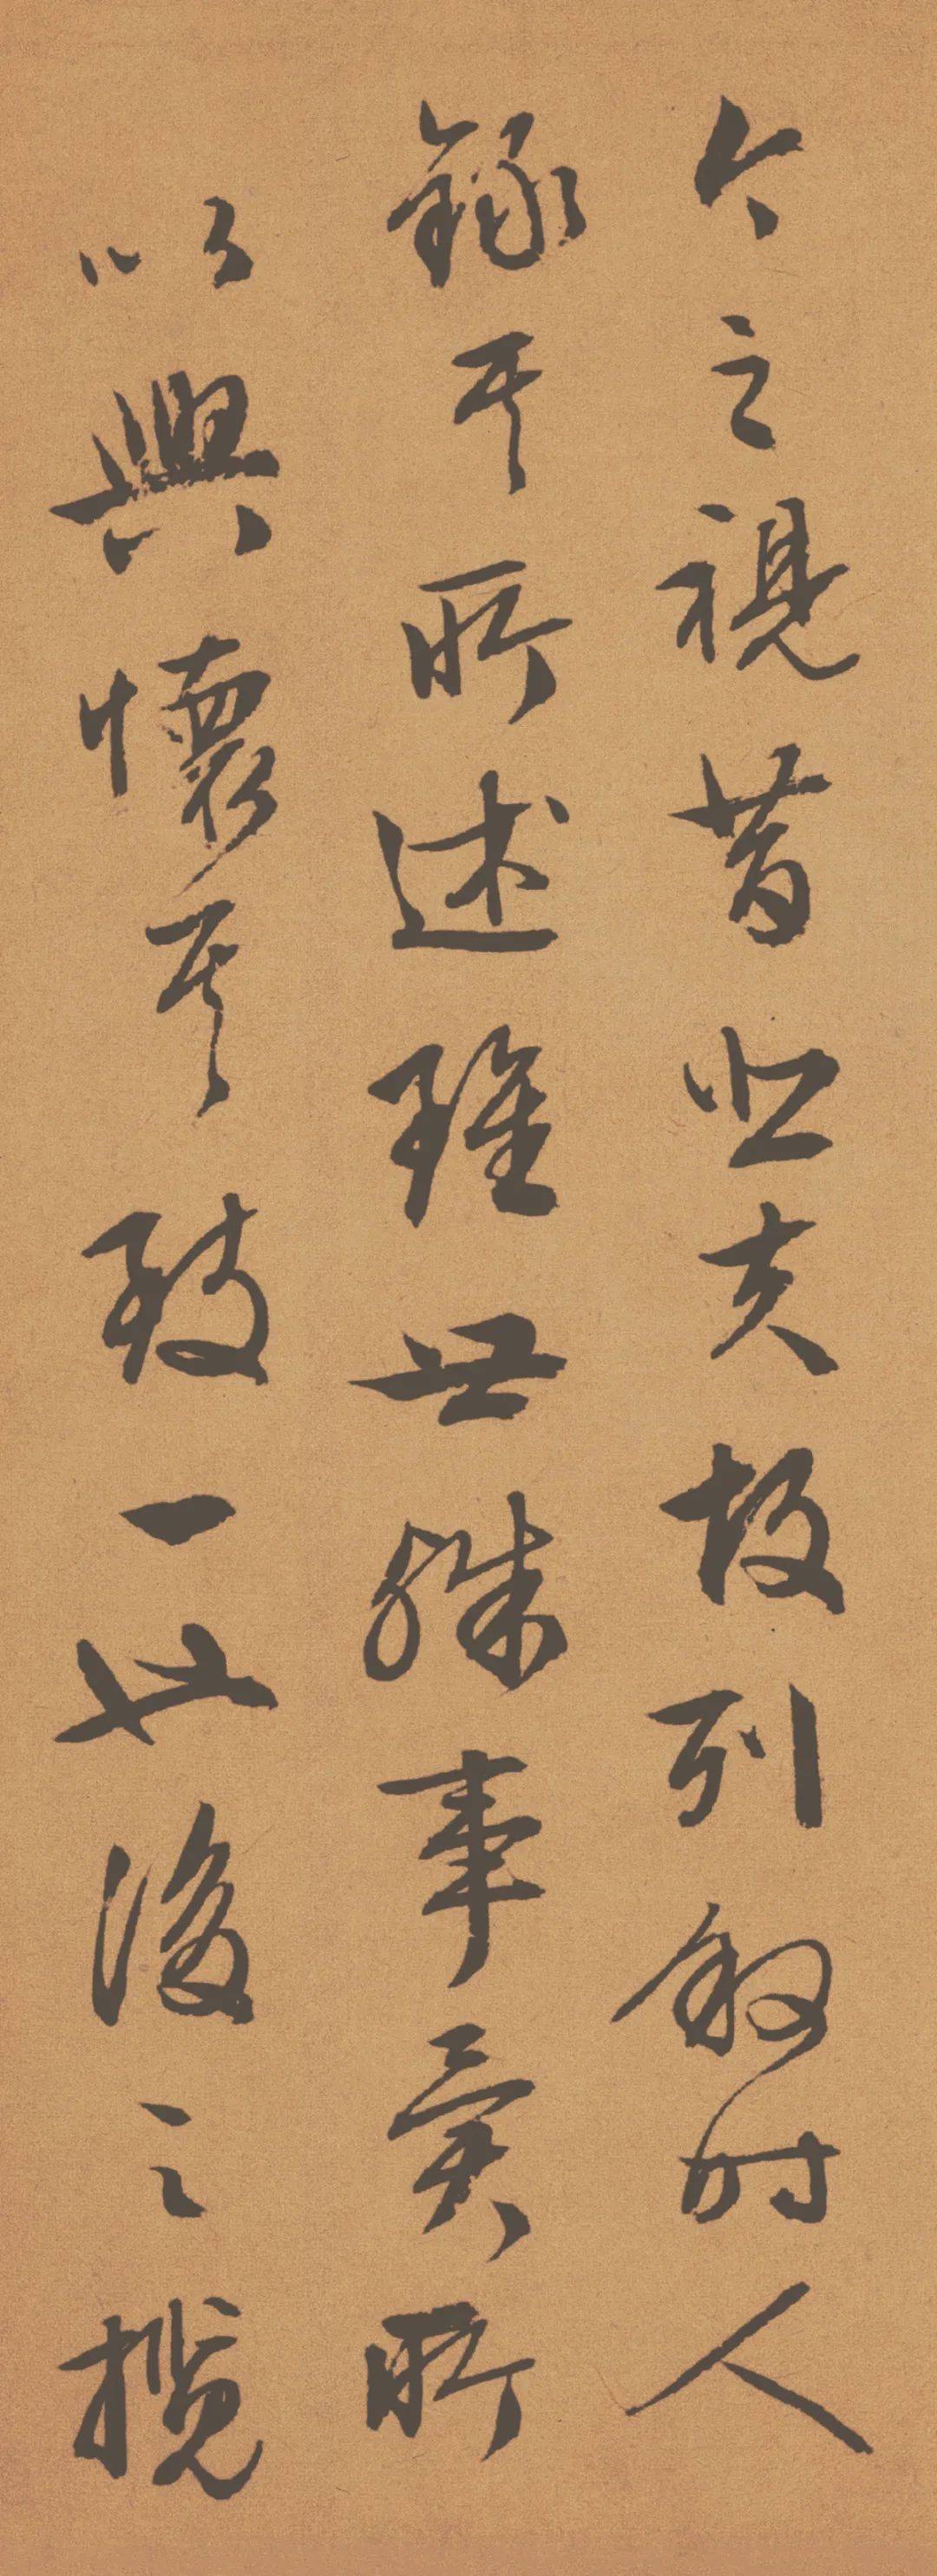 今之視昔悲夫故列叙时人
録其所述雖世殊事異所
以興懷其致一也後之攬